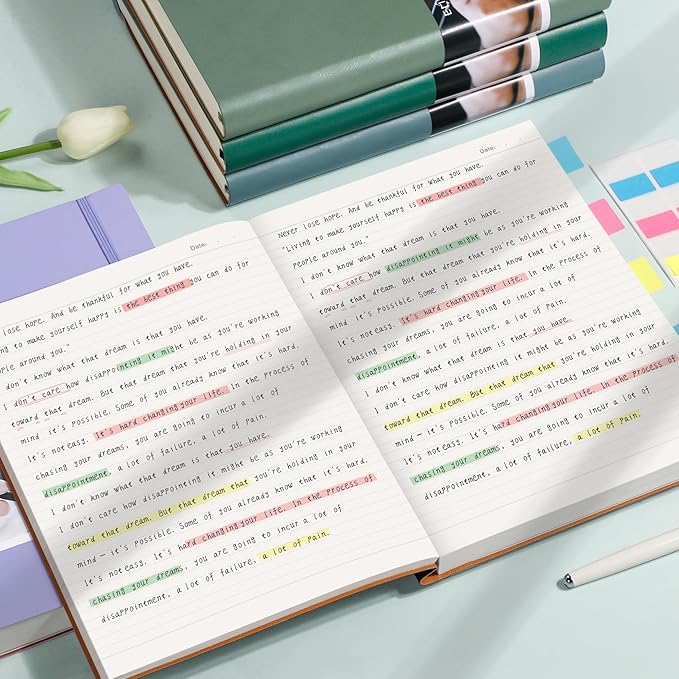 Date:
lose hope. And be thankful for what you have.
ng to make yourself happy is the best thing you can do for
ple around you."
don't know what that dream is that you have.
I don't care how disappointing it might be as you're working
toward that dream. But that dream that you're holding in your
mind it's possible. Some of you already know that it's hard.
It's not easy. It's hard changing your life. In the process of
chasing your dreams, you are going to incur a lot of
disappointment, a lot of failure, a lot of pain.
I don't know what that dream is that you have.
I don't care how disappointing it might be as you're working
toward that dream. But that dream that you're holding in your
mind — it's possible. Some of you already know that it's hard.
It's not easy. It's hard changing your life. In the process of
chasing your dreams, you are going to incur a lot of
disappointment, a lot of failure, a lot of pain.
Date:
Never lose hope. And be thankful for what you have.
"Living to make yourself happy is the best thing you can do for
people around you."
I don't know what that dream is that you have.
I don't care how disappointing it might be as you're working
toward that dream. But that dream that you're holding in your
mind it's possible. Some of you already know that it's hard.
It's not easy. It's hard changing your life. In the process of
chasing your dreams, you are going to incur a lot of
disappointment, a lot of failure, a lot of pain.
I don't know what that dream is that you have.
I don't care how disappointing it might be as you're working
toward that dream. But that dream that you're holding in your
mind — it's possible. Some of you already know that it's hard.
It's not easy. It's hard changing your life. In the process of
chasing your dreams, you are going to incur a lot of
disappointment, a lot of failure, a lot of pain.